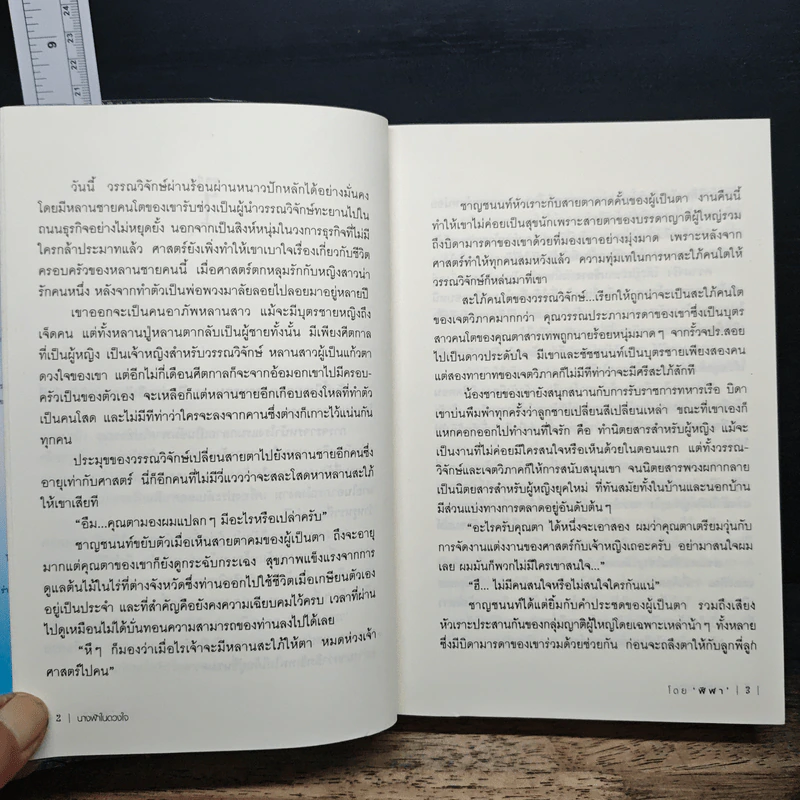 วันนี้ วรรณวิจักษ์ผ่านร้อนผ่านหนาวปักหลักได้อย่างมั่นคง
โดยมีหลานชายคนโตของเขารับช่วงเป็นผู้นำวรรณวิจักษ์ทะยานไปใน
ถนนธุรกิจอย่างไม่หยุดยั้ง นอกจากเป็นสิงห์หนุ่มในวงการธุรกิจที่ไม่มี
ใครกล้าประมาทแล้ว ศาสตร์ยังเพิ่งทำให้เขาเบาใจเรื่องเกี่ยวกับชีวิต
ครอบครัวของหลานชายคนนี้ เมื่อศาสตร์ตกหลุมรักกับหญิงสาวน่า
รักคนหนึ่ง หลังจากทำตัวเป็นพ่อพวงมาลัยลอยไปลอยมาอยู่หลายปี
เขาออกจะเป็นคนอาภัพหลานสาว แม้จะมีบุตรชายหญิงถึง
เจ็ดคน แต่ทั้งหลานปู่หลานตากลับเป็นผู้ชายทั้งนั้น มีเพียงคีตกาล
ที่เป็นผู้หญิง เป็นเจ้าหญิงสำหรับวรรณวิจักษ์ หลานสาวผู้เป็นแก้วตา
ดวงใจของเขา แต่อีกไม่กี่เดือนคีตกาลก็จะจากอ้อมอกเขาไปมีครอบ-
ครัวเป็นของตัวเอง จะเหลือก็แต่หลานชายอีกเกือบสองโหลที่ทำตัว
เป็นคนโสด และไม่มีทีท่าว่าใครจะลงจากคานซึ่งต่างก็เกาะไว้แน่นกัน
ทุกคน
ประมุขของวรรณวิจักษ์เปลี่ยนสายตาไปยังหลานชายอีกคนซึ่ง
อายุเท่ากับศาสตร์ นี่ก็อีกคนที่ไม่มีวี่แววว่าจะสละโสดหาหลานสะใภ้
ให้เขาเสียที
“อืม...คุณตามองผมแปลกๆ มีอะไรหรือเปล่าครับ”
ชาญชนนท์ขยับตัวเมื่อเห็นสายตาคมของผู้เป็นตา ถึงจะอายุ
มากแต่คุณตาของเขาก็ยังดูกระฉับกระเฉง สุขภาพแข็งแรงจากการ
ดูแลต้นไม้ในไร่ที่ต่างจังหวัดซึ่งท่านออกไปใช้ชีวิตเมื่อเกษียนตัวเอง
อยู่เป็นประจำ และที่สำคัญคือยังคงความเฉียบคมไว้ครบ เวลาที่ผ่าน
ไปดูเหมือนไม่ได้บั่นทอนความสามารถของท่านลงไปได้เลย
“หึๆ ก็มองว่าเมื่อไรเจ้าจะมีหลานสะใภ้ให้ตา หมดห่วงเจ้า
ศาสตร์ไปคน”
2 | นางฟ้าในดวงใจ
ชาญชนนท์หัวเราะกับสายตาคาดคั้นของผู้เป็นตา งานคืนนี้
ทำให้เขาไม่ค่อยเป็นสุขนักเพราะสายตาของบรรดาญาติผู้ใหญ่รวม
ถึงบิดามารดาของเขาด้วยที่มองเขาอย่างมุ่งมาด เพราะหลังจาก
ศาสตร์ทำให้ทุกคนสมหวังแล้ว ความทุ่มเทในการหาสะใภ้คนโตให้
วรรณวิจักษ์ก็หล่นมาที่เขา
สะใภ้คนโตของวรรณวิจักษ์...เรียกให้ถูกน่าจะเป็นสะใภ้คนโต
ของเจตวิภาคมากกว่า คุณวรรณประภามารดาของเขาซึ่งเป็นบุตร
สาวคนโตของคุณตาสารเทพถูกนายร้อยหนุ่มมาดๆ จากรั้วจปร.สอย
ไปเป็นดาวประดับใจ มีเขาและชัชชนนท์เป็นบุตรชายเพียงสองคน
แต่สองทายาทของเจตวิภาคก็ไม่มีทีท่าว่าจะมีศรีสะใภ้สักที
น้องชายของเขายังสนุกสนานกับการรับราชการทหารเรือ บิดา
เขาบ่นพึมพำทุกครั้งว่าลูกชายเปลี่ยนสีเปลี่ยนเหล่า ขณะที่เขาเองก็
แหกคอกออกไปทำงานที่ใจรัก คือ ทำนิตยสารสำหรับผู้หญิง แม้จะ
เป็นงานที่ไม่ค่อยมีใครสนใจหรือเห็นด้วยในตอนแรก แต่ทั้งวรรณ-
วิจักษ์และเจตวิภาคก็ให้การสนับสนุนเขา จนนิตยสารพวงผกากลาย
เป็นนิตยสารสำหรับผู้หญิงยุคใหม่ ที่ทันสมัยทั้งในบ้านและนอกบ้าน
มีส่วนแบ่งทางการตลาดอยู่อันดับต้นๆ
“อะไรครับคุณตา ได้หนึ่งจะเอาสอง ผมว่าคุณตาเตรียมวุ่นกับ
การจัดงานแต่งงานของศาสตร์กับเจ้าหญิงเถอะครับ อย่ามาสนใจผม
เลย ผมมันก็พวกไม่มีใครเขาสนใจ...”
“ฮึ... ไม่มีคนสนใจหรือไม่สนใจใครกันแน่”
ชาญชนนท์ได้แต่ยิ้มกับคำประชดของผู้เป็นตา รวมถึงเสียง
หัวเราะประสานกันของกลุ่มญาติผู้ใหญ่โดยเฉพาะเหล่าน้าๆ ทั้งหลาย
ซึ่งมีบิดามารดาของเขาร่วมด้วยช่วยกัน ก่อนจะถลึงตาให้กับลูกพี่ลูก
โดย ‘พิฬา’ | 3 |